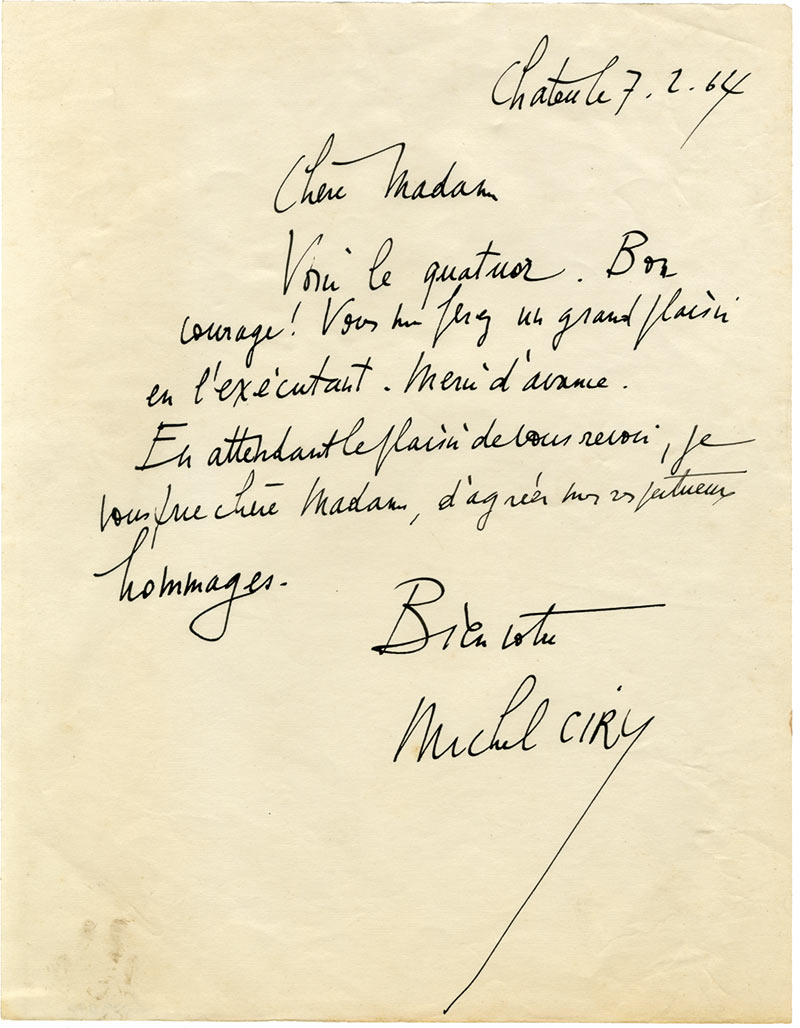 Chatou le 7.2.64
Chère Madame
Voici le quatuor. Bon
courage! Vous me ferez un grand plaisir
en l'exécutant. Merci d'avance.
En attendant le plaisir de vous revoir, je
vous prie chère Madame, d'agréer mes respectueux
hommages.
Bien votre
Michel CIRY